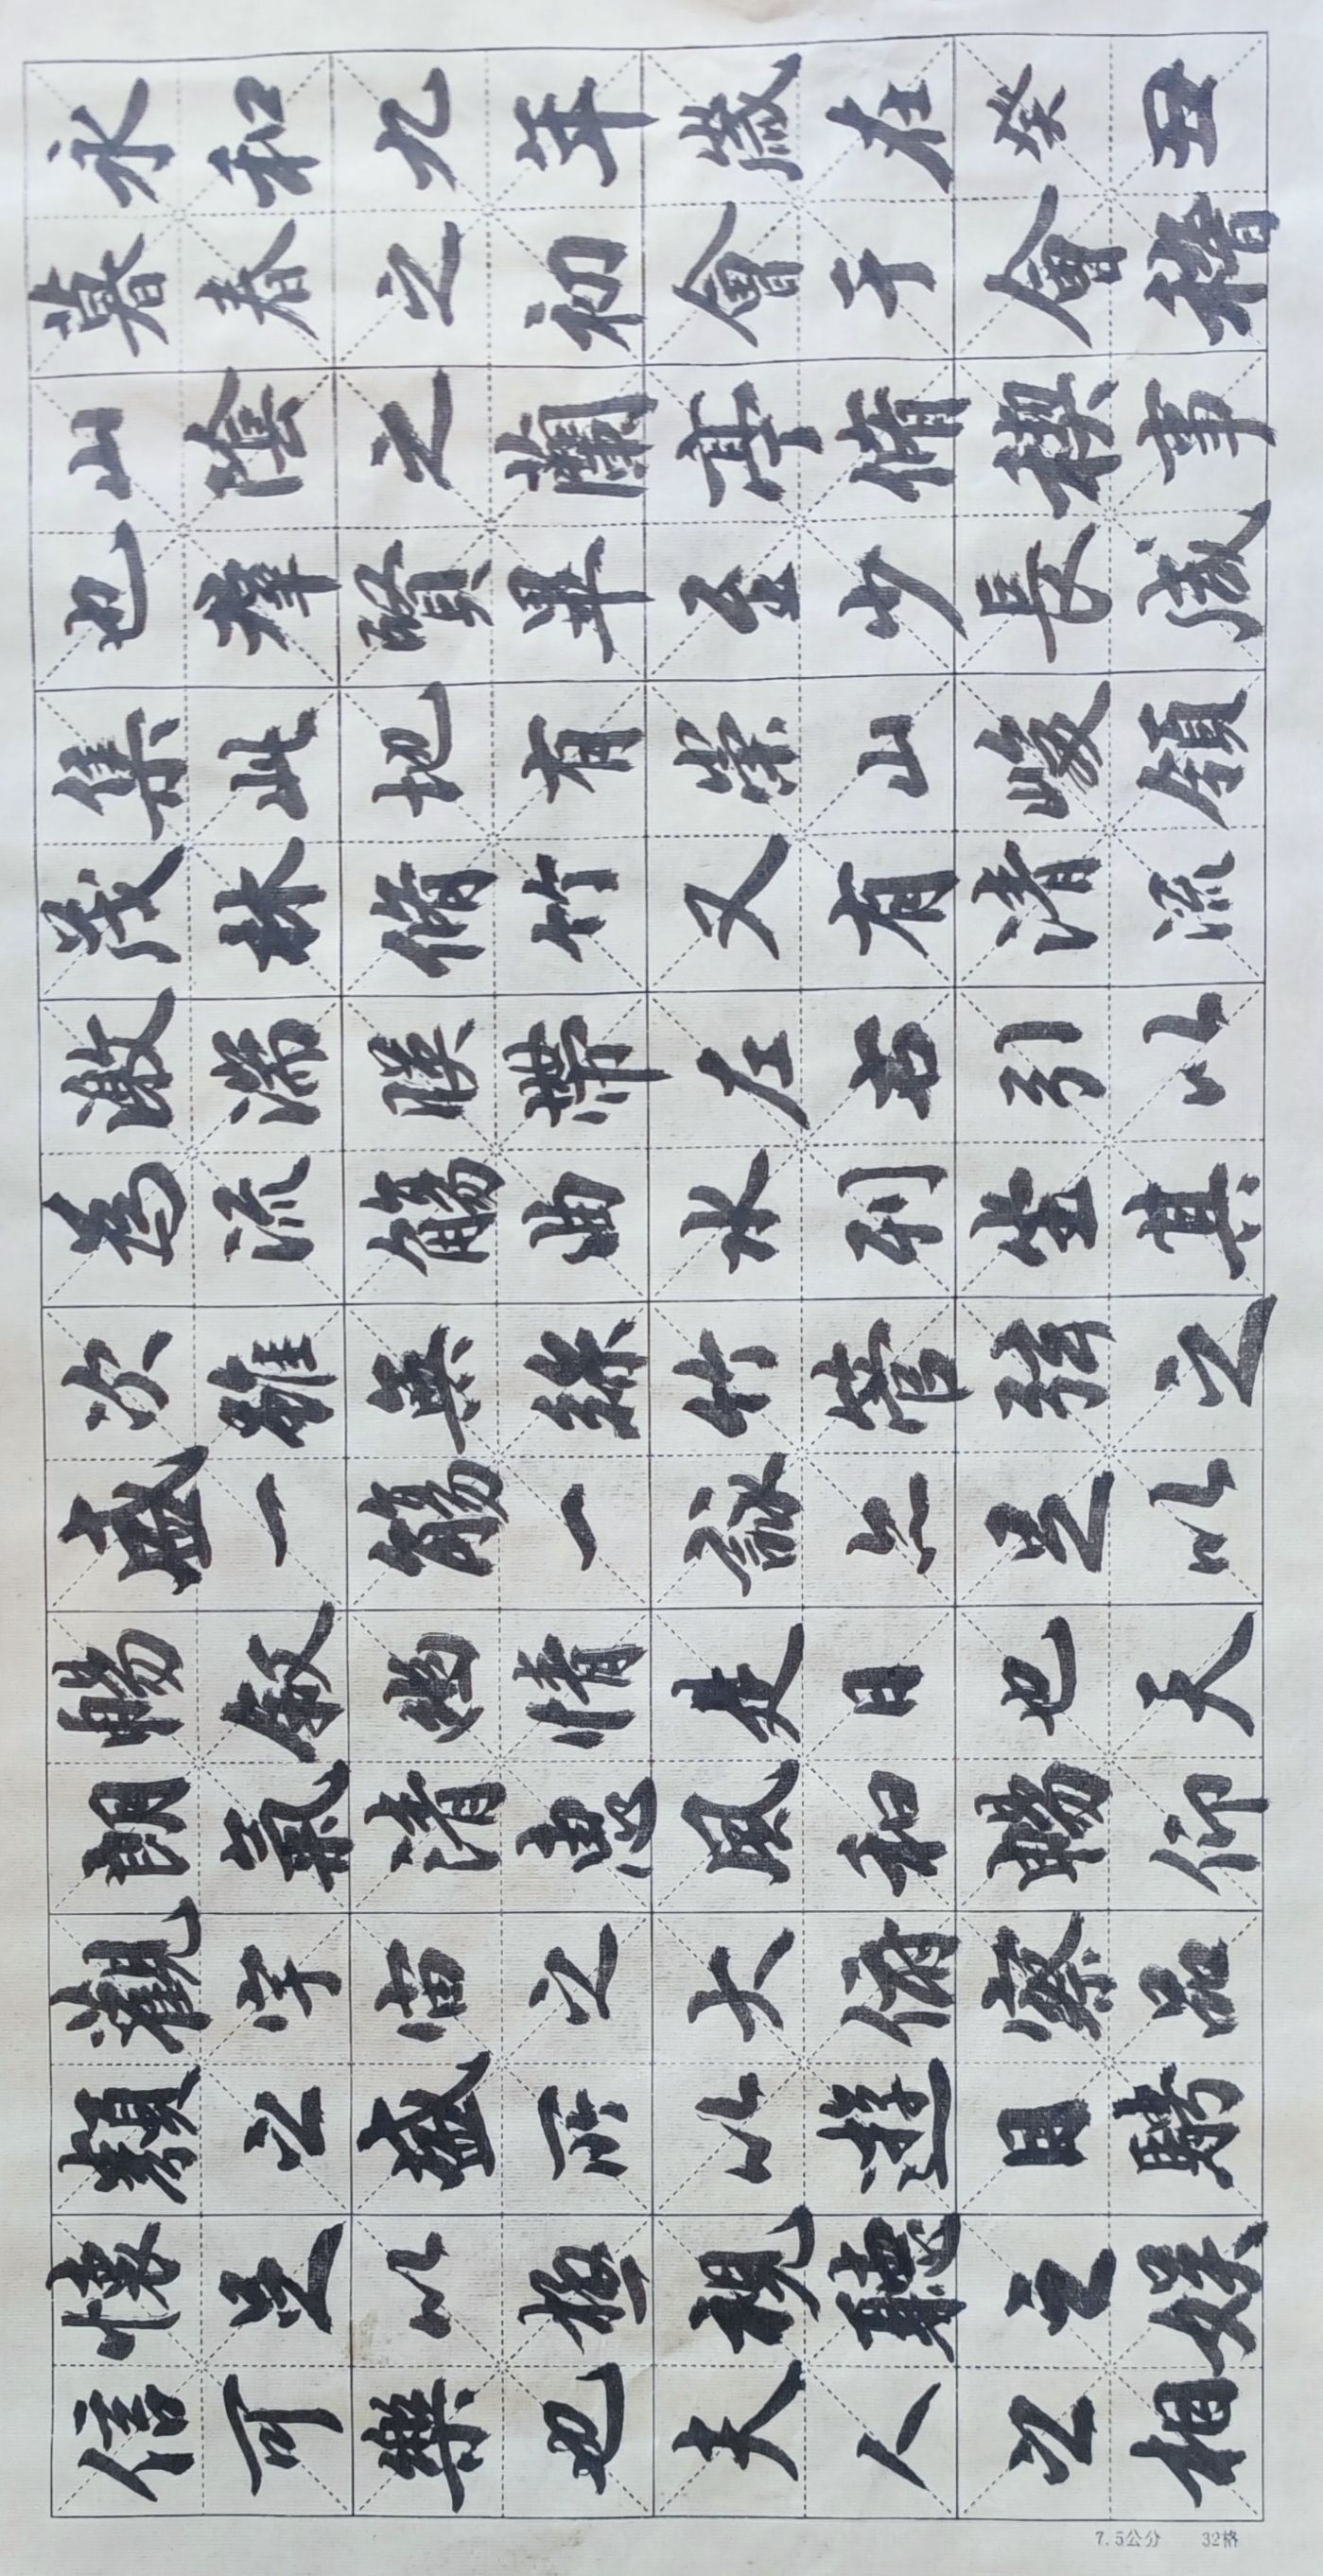 永和九年歲在癸丑
暮春之初會于會稽
山陰之蘭亭脩禊事
也羣賢畢至少長咸
集此地有崇山峻領
茂林脩竹又有清流
激湍暎帶左右引以
為流觴曲水列坐其
次雖無絲竹管弦之
盛一觴一詠亦足以
暢敘幽情是日也天
朗氣清惠風和暢仰
觀宇宙之大俯察品
類之盛所以遊目騁
懷足以極視聽之娛
信可樂也夫人之相
7.5公分 32格